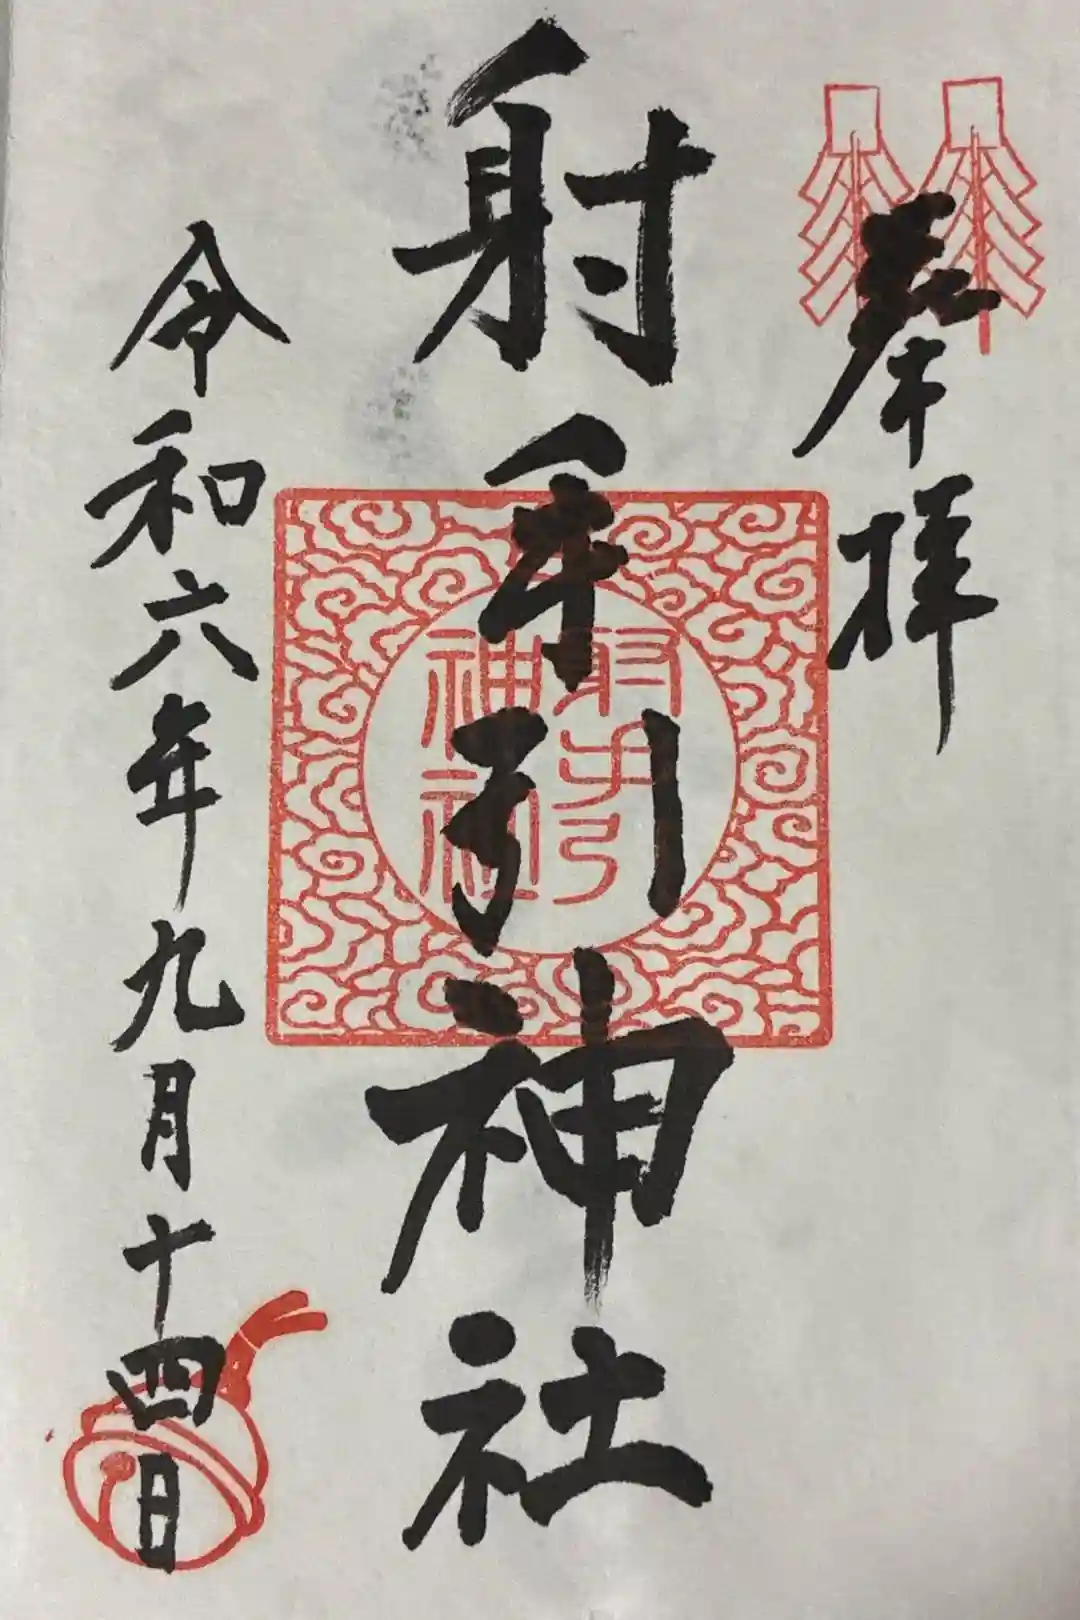 奉拝
射手引神社
射手引
神社
令和六年九月十四日